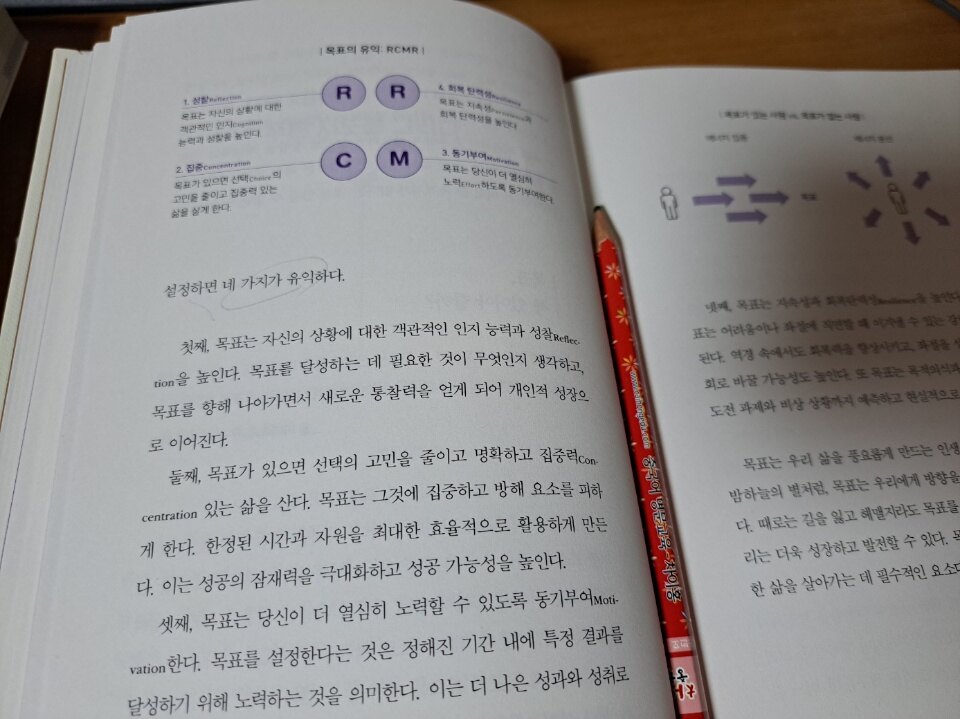 | 목표의 유익: RCMR |
1. 성찰Reflection
목표는 자신의 상황에 대한
객관적인 인지Cognition
능력과 성찰을 높인다.
R
R
4. 회복 탄력성Resilience
목표는 지속성Persistence과
회복 탄력성을 높인다.
2. 집중Concentration
목표가 있으면 선택Choice의
고민을 줄이고 집중력 있는
삶을 살게 한다.
C
M
3. 동기부여Motivation
목표는 당신이 더 열심히
노력Effort하도록 동기부여한다.
설정하면 네 가지가 유익하다.
첫째, 목표는 자신의 상황에 대한 객관적인 인지 능력과 성찰Reflec-
tion을 높인다. 목표를 달성하는 데 필요한 것이 무엇인지 생각하고,
목표를 향해 나아가면서 새로운 통찰력을 얻게 되어 개인적 성장으
로 이어진다.
둘째, 목표가 있으면 선택의 고민을 줄이고 명확하고 집중력Con-
centration 있는 삶을 산다. 목표는 그것에 집중하고 방해 요소를 피하
게 한다. 한정된 시간과 자원을 최대한 효율적으로 활용하게 만든
다. 이는 성공의 잠재력을 극대화하고 성공 가능성을 높인다.
셋째, 목표는 당신이 더 열심히 노력할 수 있도록 동기부여Moti-
vation한다. 목표를 설정한다는 것은 정해진 기간 내에 특정 결과를
달성하기 위해 노력하는 것을 의미한다. 이는 더 나은 성과와 성취로
| 목표가 있는 사람 vs. 목표가 없는 사람 |
에너지 집중
에너지 분산
목표
넷째, 목표는 지속성과 회복탄력성Resilience을 높인다
표는 어려움이나 좌절에 직면할 때 이겨낼 수 있는
된다. 역경 속에서도 회복력을 향상시키고, 좌절을
회로 바꿀 가능성도 높인다. 또 목표는 목적의식과
도전 과제와 비상 상황까지 예측하고 현실적으로
목표는 우리 삶을 풍요롭게 만드는 인생
밤하늘의 별처럼, 목표는 우리에게 방향을
다. 때로는 길을 잃고 헤맬지라도 목표를
리는 더욱 성장하고 발전할 수 있다.
한 삶을 살아가는 데 필수적인 요소다
중국어 명문교육-차이홍